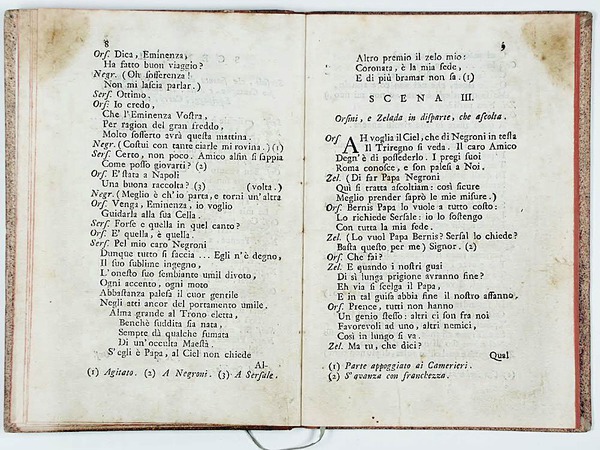 8
Orſ. Dica, Eminenza,
Ha fatto buon viaggio?
Negr. (Oh ſofferenza!
Non mi laſcia parlar.)
Serſ. Ottimo.
Orſ. Io credo,
Che l'Eminenza Voſtra,
Per ragion del gran freddo,
Molto ſofferto avrà queſta mattina.
Negr. (Coſtui con tante ciarle mi rovina.) (1)
Serſ. Certo, non poco. Amico alfin ſi ſappia
Come poſſo giovarti? (2)
Orſ. E' ſtata a Napoli
Una buona raccolta? (3) (volta.)
Negr. (Meglio è ch'io parta, e torni un'altra
Orſ. Venga, Eminenza, io voglio
Guidarla alla ſua Cella.
Serſ. Forſe e quella in quel canto?
Orſ. E' quella, è quella.
Serſ. Pel mio caro Negroni
Dunque tutto ſi faccia ... Egli n'è degno,
Il ſuo ſublime ingegno,
L'oneſto ſuo ſembiante umil divoto,
Ogni accento, ogni moto
Abbaſtanza paleſa il cuor gentile
Negli atti ancor del portamento umile.
Alma grande al Trono eletta,
Benchè ſuddita ſia nata,
Sempre dà qualche fumata
Di un'occulta Maeſtà.
S'egli è Papa, al Ciel non chiede
Al-
(1) Agitato. (2) A Negroni. (3) A Serſale.
9
Altro premio il zelo mio:
Coronata, è la mia fede,
E di più bramar non ſa. (1)
SCENA III.
Orſini, e Zelada in diſparte, che aſcolta.
Orſ AH voglia il Ciel, che di Negroni in teſta
Il Triregno ſi veda. Il caro Amico
Degn'è di poſſederlo. I pregi ſuoi
Roma conoſce, e ſon paleſi a Noi.
Zel. (Di far Papa Negroni
Quì ſi tratta aſcoltiam: così ſicure
Meglio prender ſaprò le mie miſure.)
Orſ. Bernis Papa lo vuole a tutto coſto:
Lo richiede Serſale: io lo ſoſtengo
Con tutta la mia fede.
Zel. (Lo vuol Papa Bernis? Serſal lo chiede?
Baſta queſto per me) Signor. (2)
Orſ. Che fai?
Zel. E quando i noſtri guai
Di sì lunga prigione avranno fine?
Eh via ſi ſcelga il Papa,
E in tal guiſa abbia fine il noſtro affanno.
Orſ. Prence, tutti non hanno
Un genio ſteſſo: altri ci ſon fra noi
Favorevoli ad uno, altri nemici,
Così in lungo ſi va.
Zel. Ma tu, che dici?
Qual
(1) Parte appoggiato ai Camerieri.
(2) S'avanza con franchezza.